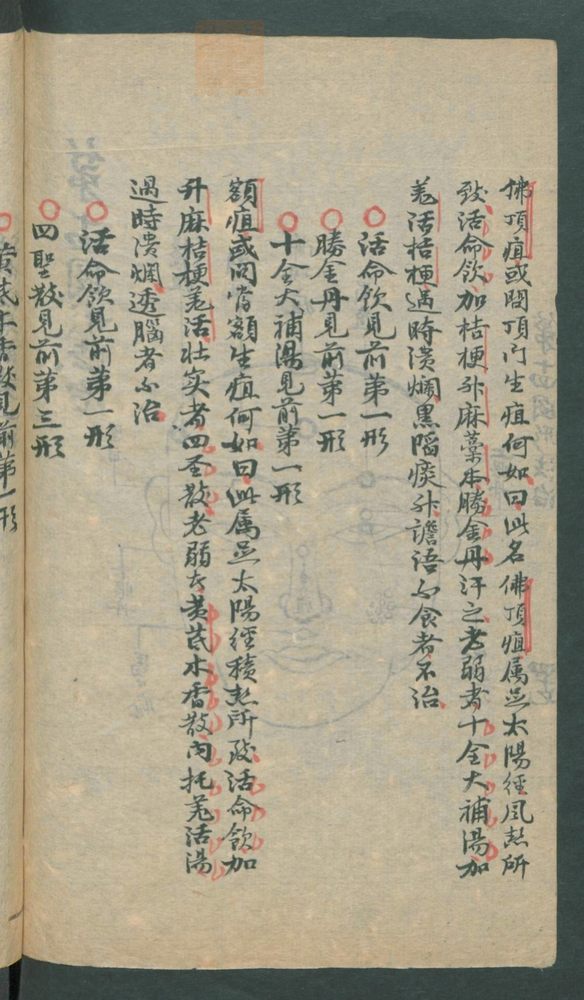 佛頂疽或問頂門生疽何如曰此名佛頂疽属足太陽經風热所
致活命飲加桔梗升麻藁本勝金丹汗之老弱者十全大補湯加
羗活桔梗過時潰爛黒陷痰升譫语不食者不治
活命飲見前第一形
勝金丹見前第一形
十全大補湯見前第一形
額疽或问當額生疽何如曰此属足太陽經積热所致活命飲加
升麻桔梗羗活壮实者四圣散老弱者黄芪木香散内托羗活湯
過時潰爛透腦者不治
活命飲見前第一形
四聖散見前第三形
黄芪木香散見前第一形